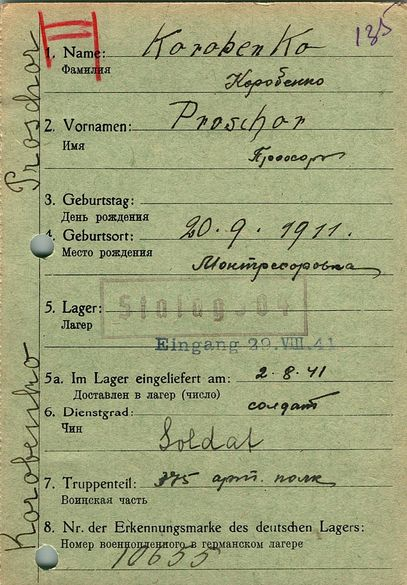 135
1. Name: Korobenko
Фамилия
Коробенко
2. Vornamen: Proschor
Имя
Прохор
3. Geburtstag:
День рождения
20.9.1911.
4. Geburtsort:
Место рождения
Монтресоровка
5. Lager: Stalag 304
Лагер
Eingang 29.VIII.41
5a. Im Lager eingeliefert am: 2.8.41
Доставлен в лагер (число)
6. Dienstgrad: солдат
Чин
Soldat
7. Truppenteil: 375 арт. полк
Воинская часть
8. Nr. der Erkennungsmarke des deutschen Lagers:
Номер военнопленного в германском лагере
10655
Korobenko Proschor